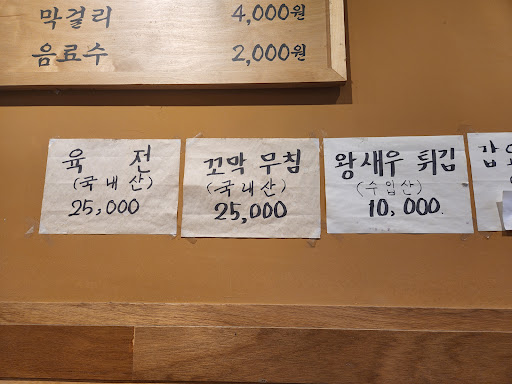 막걸리 4,000원
음료수 2,000원
육 전
(국내산)
25,000
꼬막 무침
(국내산)
25,000
왕새우 튀김
(수입산)
10,000
갑